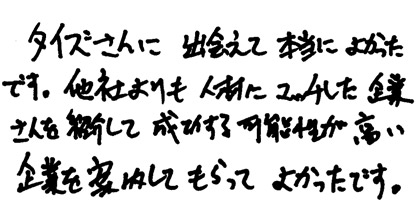 タイズさんに 出会えて 本当に よかった
です。他社よりも 人材に マッチした 企業
さんを紹介して 成功する可能性が 高い
企業を案内して もらって よかったです。